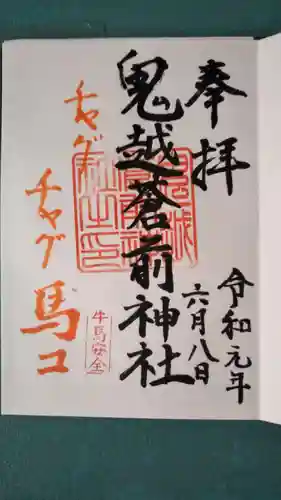 奉拝
令和元年
六月八日
鬼越蒼前神社
牛馬安全
チャグ
チャグ
馬コ